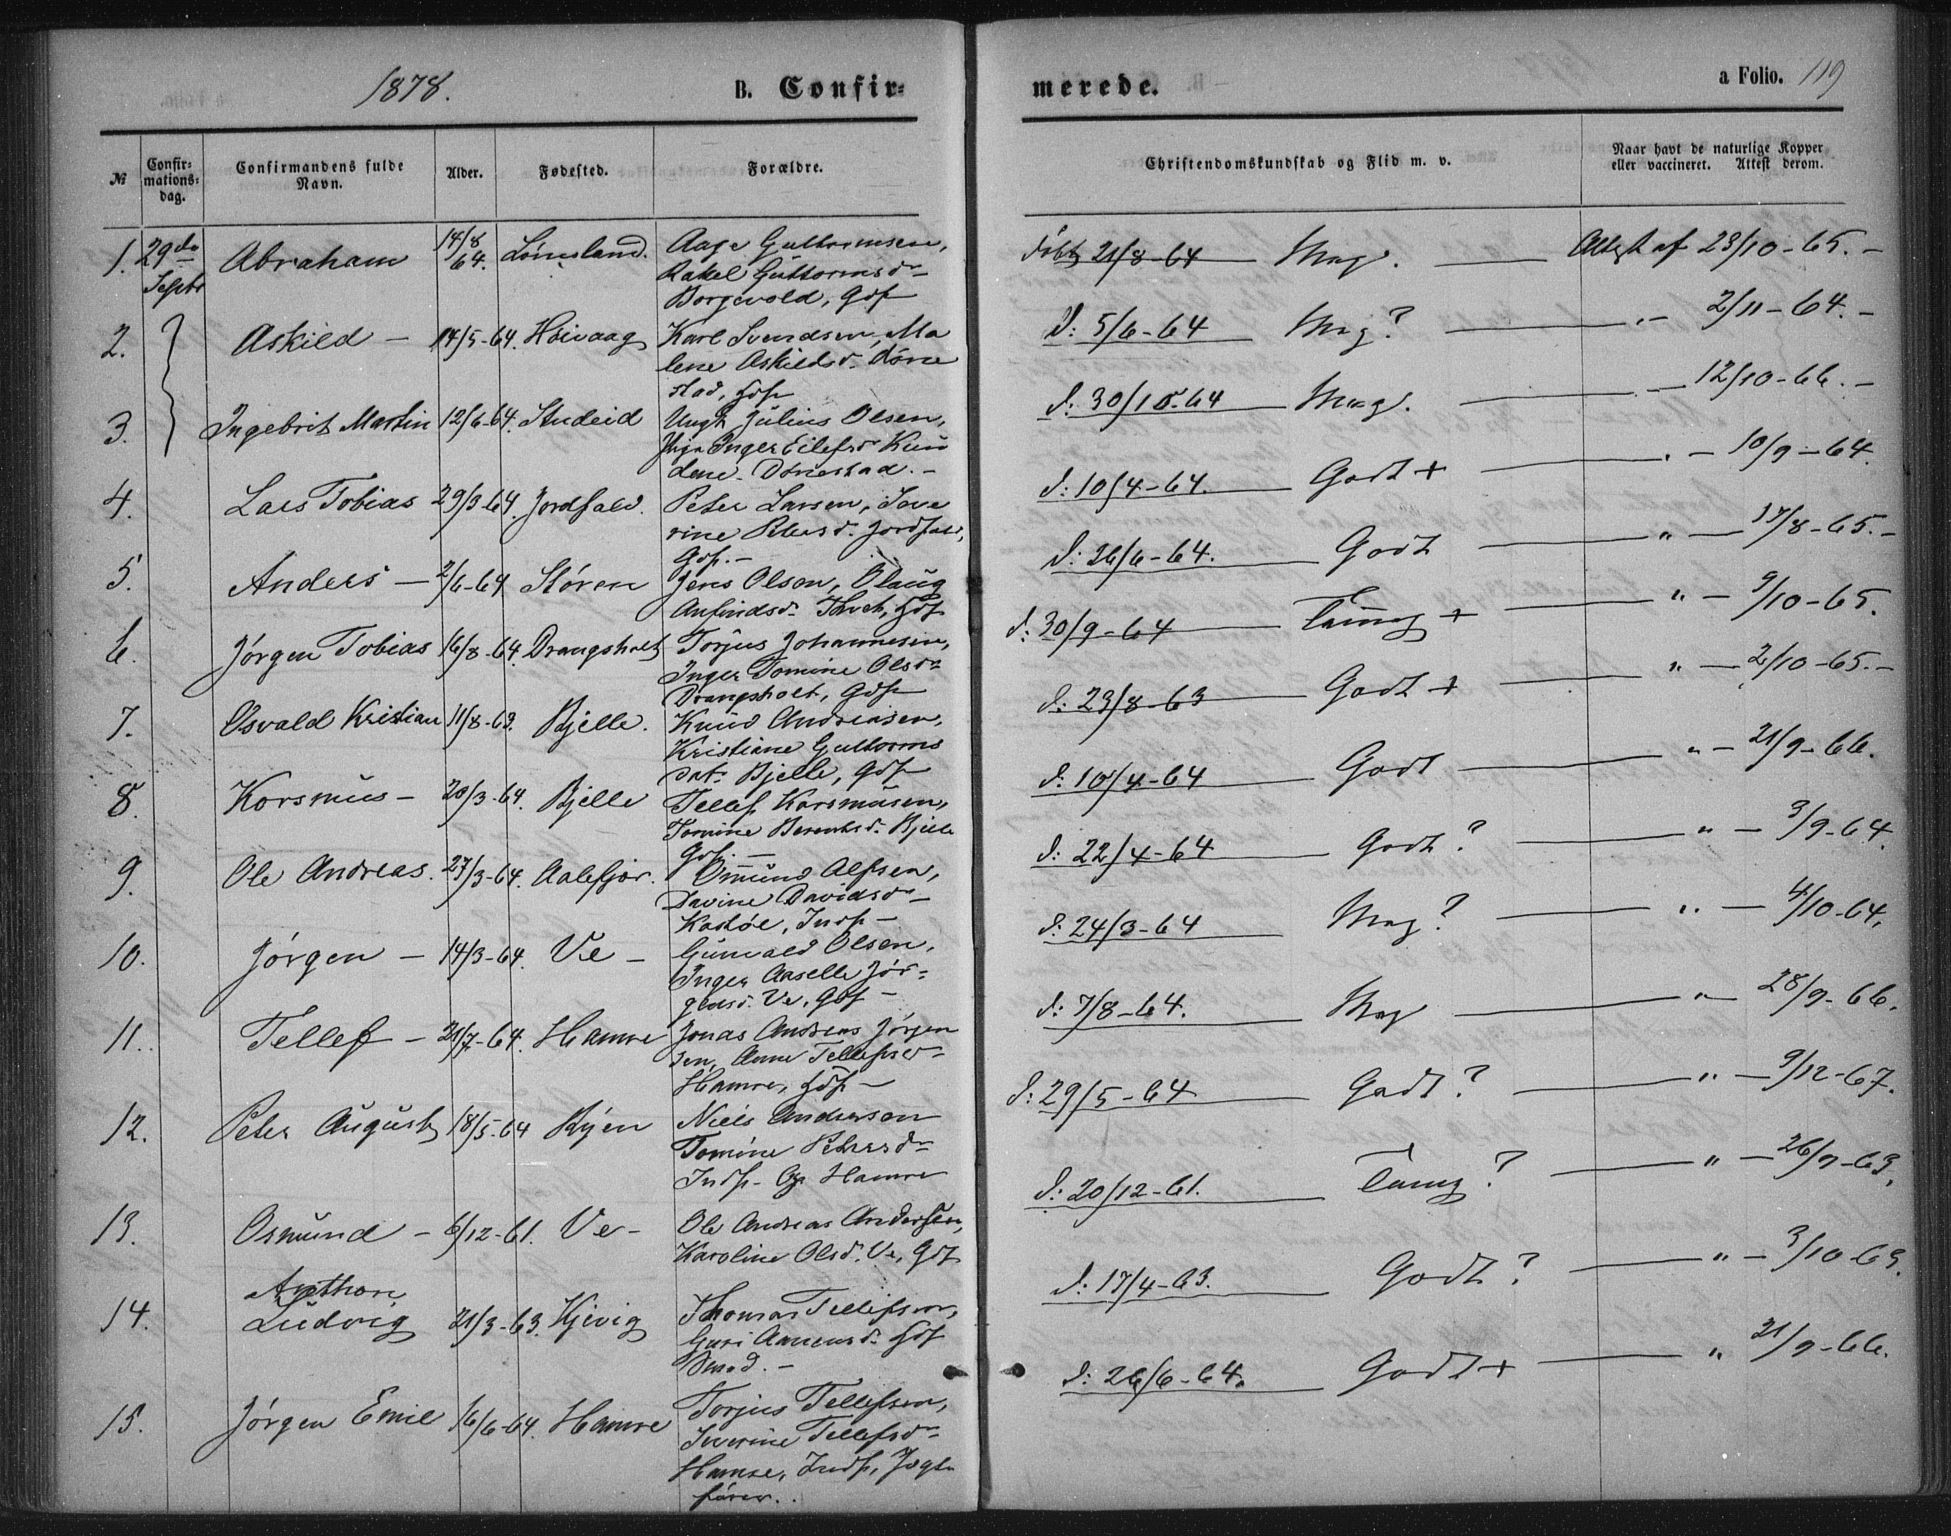 1878.
B. Confir-
№
Confir-
mations-
dag.
Confirmandens fulde
Navn.
Alder.
Fødested.
Forældre.
1. 29de Septbr Abraham 14/8 64. Lømsland. Aage Guttormsen,
Rakel Guttormsdr
Borgevold, Gdf
2. Askild – 14/5-64. Høivaag Karl Svendsen, Ma
lene Askildsdr. Døne
stad, Gdf
3. Ingebrit Martin 12/6-64. Studeid Ungk. Julius Olsen,
Pige Inger Eilefsdr
Dønestad. –
4. Lars Tobias 29/3-64. Jordfald. Peter Larsen, Seve
rine Petersdr. Jordfald,
Gdf. –
5. Anders – 2/6-64 Støren Jens Olsen, Olaug
Anfindsdr. Gdf
6. Jørgen Tobias 16/8-64. Drangsholt Torjus Johannesen,
Inger Tomine Olsdr
Drangsholt, Gdf
7. Osvald Kristian 11/8-63. Bjelle. Knud Andreasen,
Kristiane Guttorms
dat. Bjelle, Gdf
8. Korsmus – 20/3-64. Bjelle Tellef Korsmusen,
Tomine Berentsdr. Bjelle
Gdf. –
9. Ole Andreas. 27/3-64. Aalefjær. Omund Alfsen,
Davine Davidsdr –
Indf –
10. Jørgen – 14/3-64. Ve – Gunvald Olsen,
Inger Aaselle Jør-
gensd. Ve, Gdf –
11. Tellef – 21/7-64. Hamre Jonas Andreas Jørgen
sen, Anne Tellefsdr
Hamre, Gdf –
12. Peter August 18/5-64 Ryen Niels Andersen
Tomine Petersdr
Indf. Hamre
13. Osmund – 6/12-61. Ve – Ole Andreas Andersen,
Karoline Olsd. Ve, Gdf
14. Anthon
Ludvig 21/3-63. Kjevig Thomas Tellefsen,
Guri Aanensdr. Gdf
15. Jørgen Emil 16/6-64. Hamre Torjus Tellefsen,
Severine Tellefsdr
Hamre, Indf, Jagt
fører.
merede.
a Folio. 119
Christendomskundskab og Flid m. v.
Naar havt de naturlige Kopper
eller vaccineret. Attest derom.
døbt 21/8-64 Mag. Attest af 23/10-65. –
d: 5/6-64 Mag? „ – 2/11-64. –
d: 30/10-64 Mag. – 12/10-66. –
d: 10/4-64. Godt + „ – 10/9-64.
d: 26/6-64. Godt „ – 17/8-65. –
d: 30/9-64 Taug + „ – 9/10-65.
d: 23/8-63 Godt + „ – 2/10-65. –
d: 10/4-64 Godt „ – 21/9-66.
d: 22/4-64 Godt? „ – 3/9-64.
d: 24/3-64 Mag? „ – 4/10-64.
d: 7/8-64. Mag „ 28/9-66.
d: 29/5-64 Godt? „ – 9/12-67.
d: 20/12-61. Taug? „ – 26/9-63.
d: 17/4-63. Godt? „ – 3/10-63.
d: 26/6-64. Godt + „ 21/9-66.